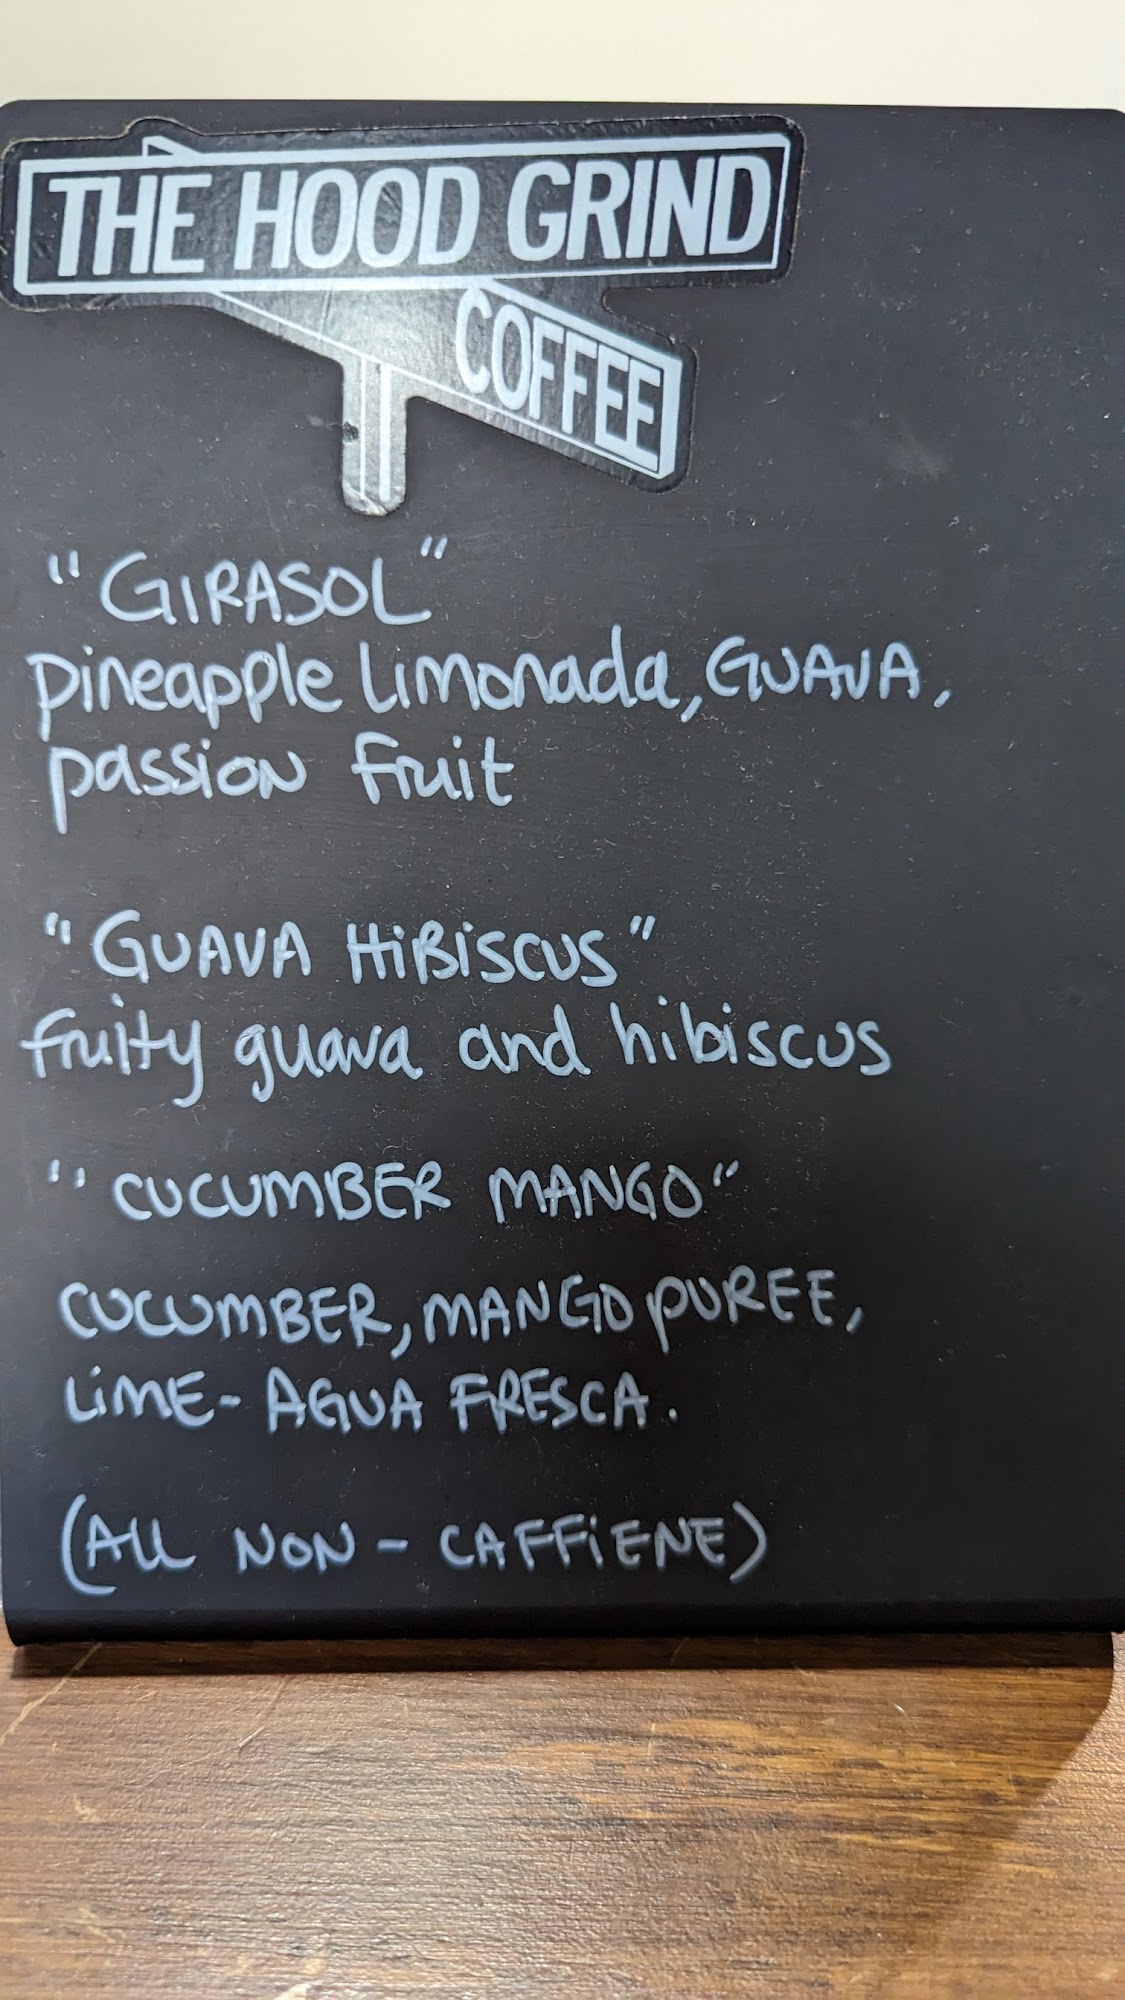 THE HOOD GRIND
COFFEE
"GIRASOL"
pineapple Limonada, GUAVA,
passion fruit
"GUAVA HiBiSCUS"
fruity guava and hibiscus
"CUCUMBER MANGO"
CUCUMBER, MANGO PUREE,
LiME - AGUA FRESCA.
(ALL NON - CAFFiENE)